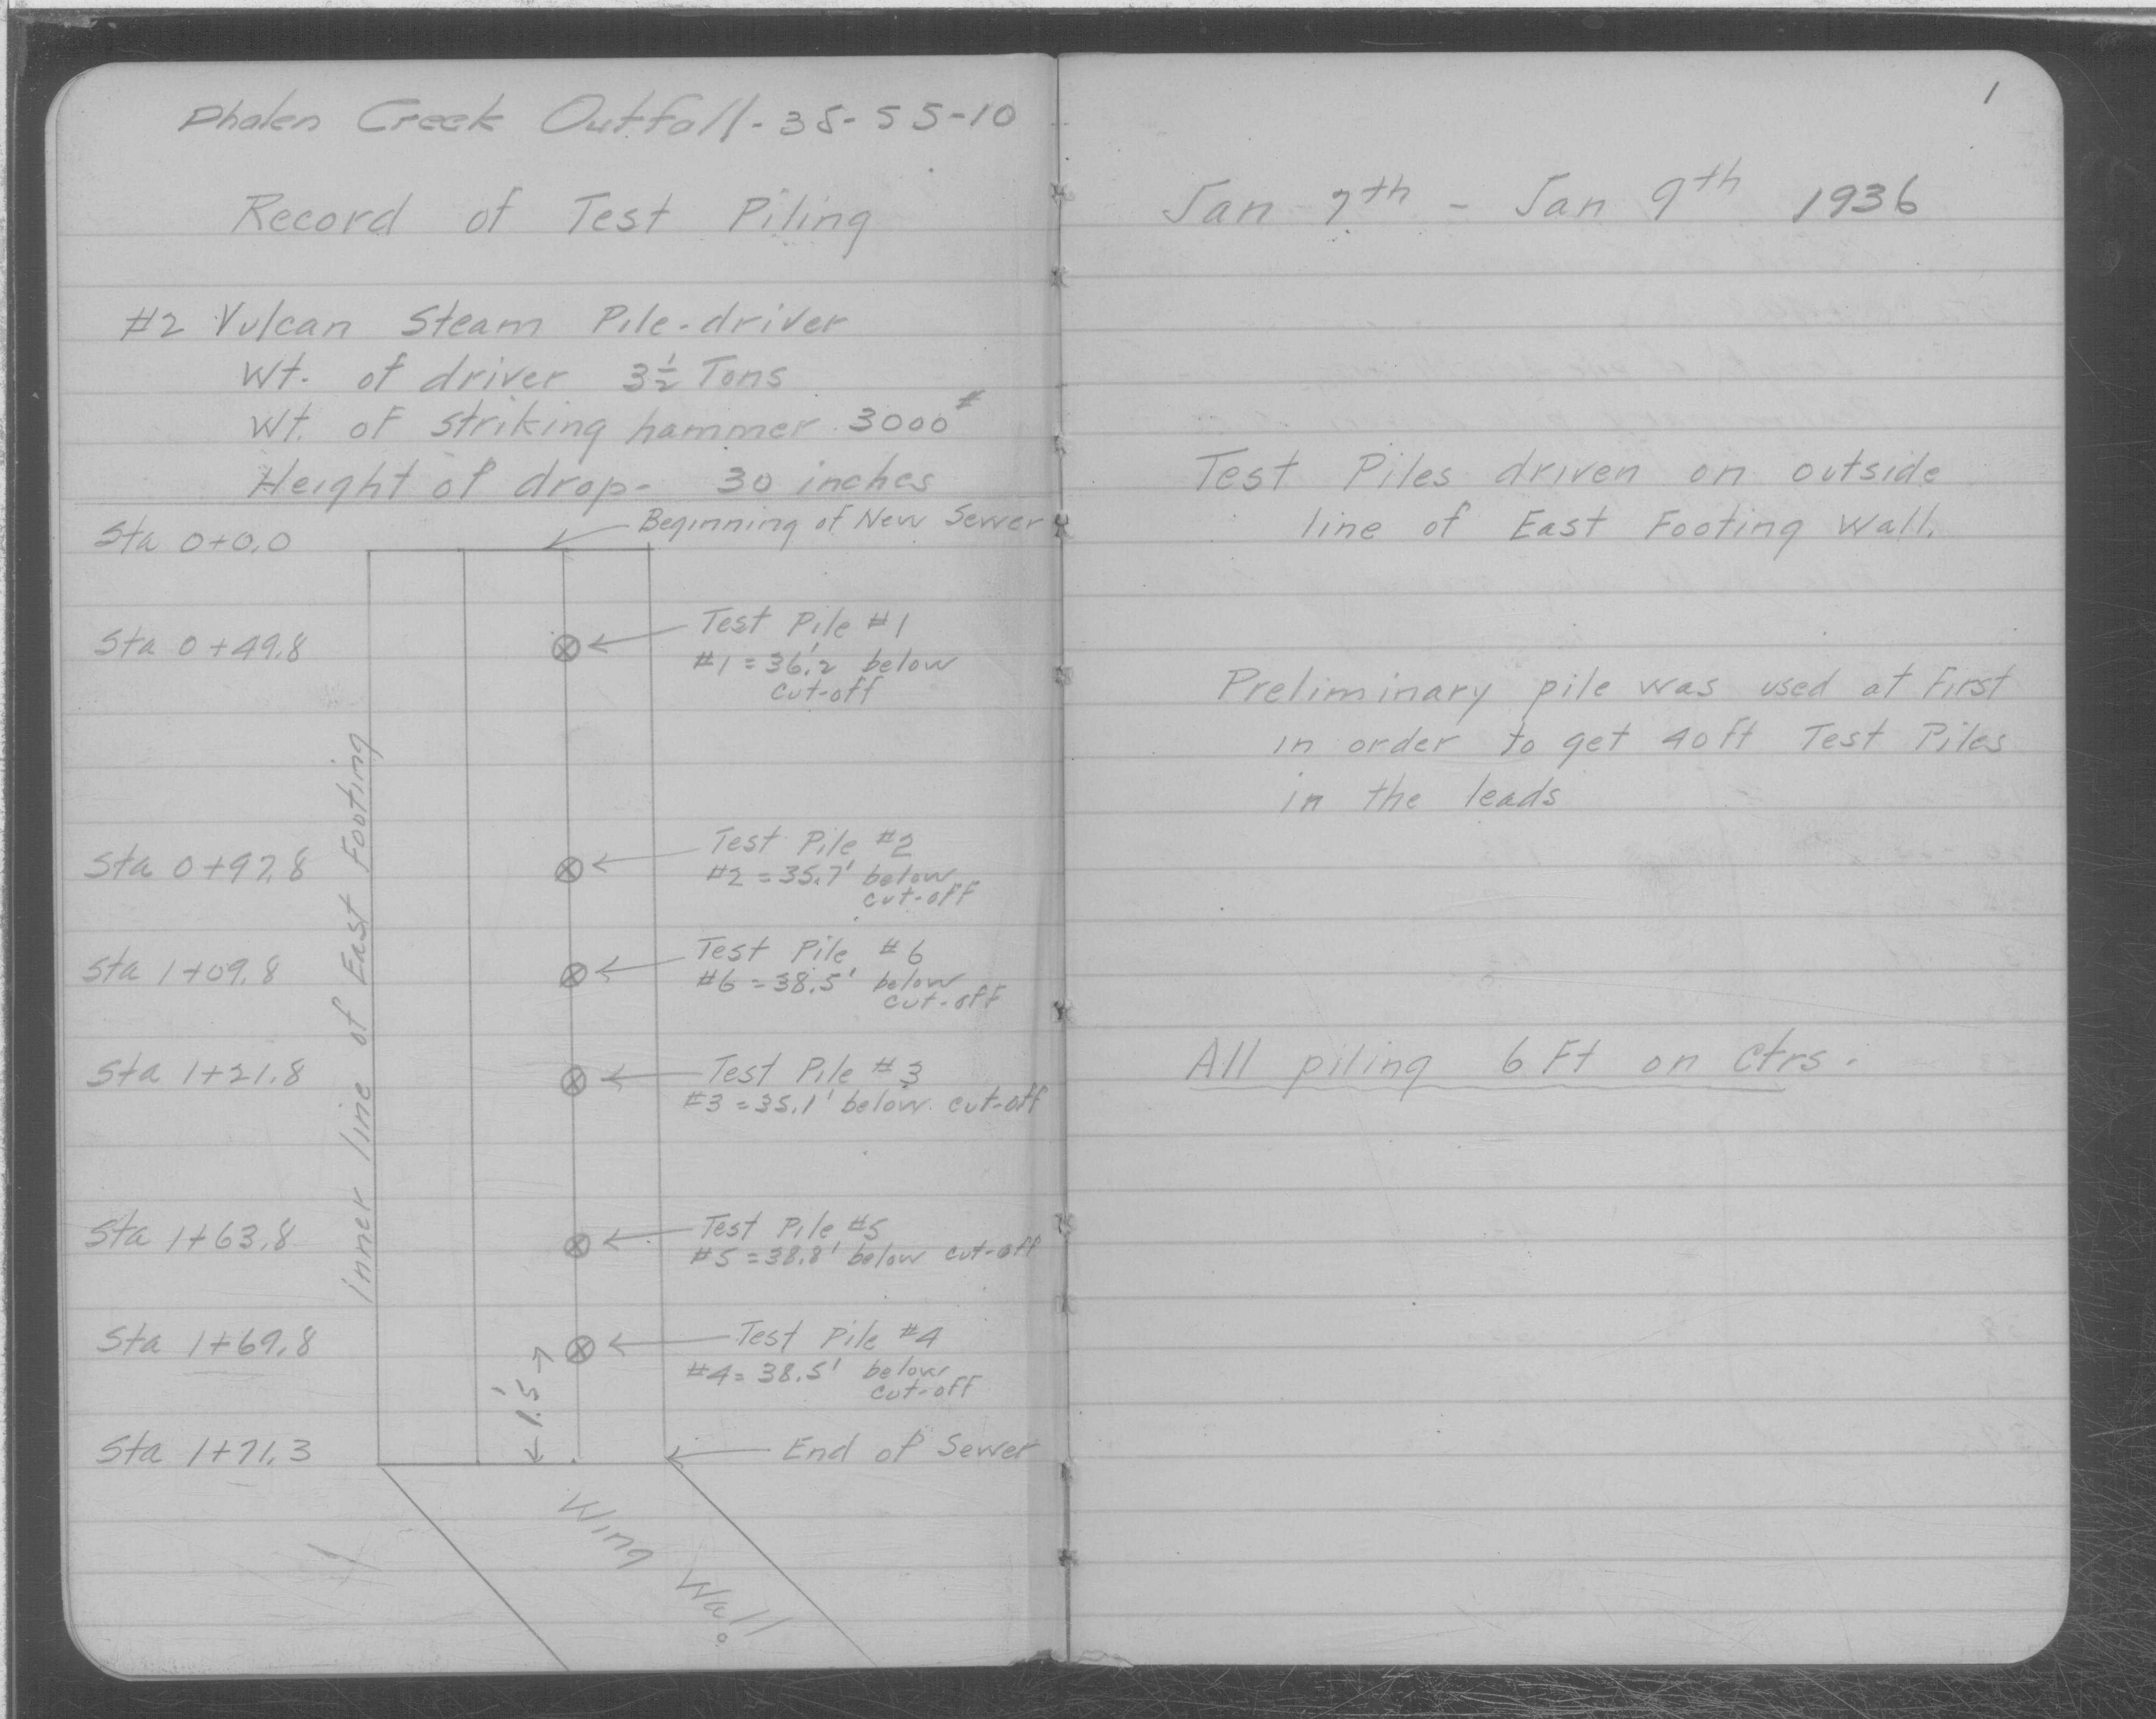 Phalen Creek Outfall - 35-55-10
Record of Test Piling
#2 Vulcan Steam Pile-driver
Wt. of driver 3½ Tons
Wt. of striking hammer 3000#
Height of drop - 30 inches
Beginning of New Sewer
Sta 0+0.0
Sta 0+49.8
Test Pile #1
#1 = 36.2' below
cut-off
Sta 0+97.8
Test Pile #2
#2 = 35.7' below
cut-off
Sta 1+09.8
Test Pile #6
#6 = 38.5' below
cut-off
Sta 1+21.8
Test Pile #3
#3 = 35.1' below cut-off
Sta 1+63.8
Test Pile #5
#5 = 38.8' below cut-off
Sta 1+69.8
Test Pile #4
#4 = 38.5' below
cut-off
1.5'
Sta 1+71.3
End of Sewer
inner line of East Footing
Wing Wall
1
Jan 7th - Jan 9th 1936
Test Piles driven on outside
line of East Footing Wall.
Preliminary pile was used at first
in order to get 40 ft Test Piles
in the leads
All piling 6 Ft on Ctrs.